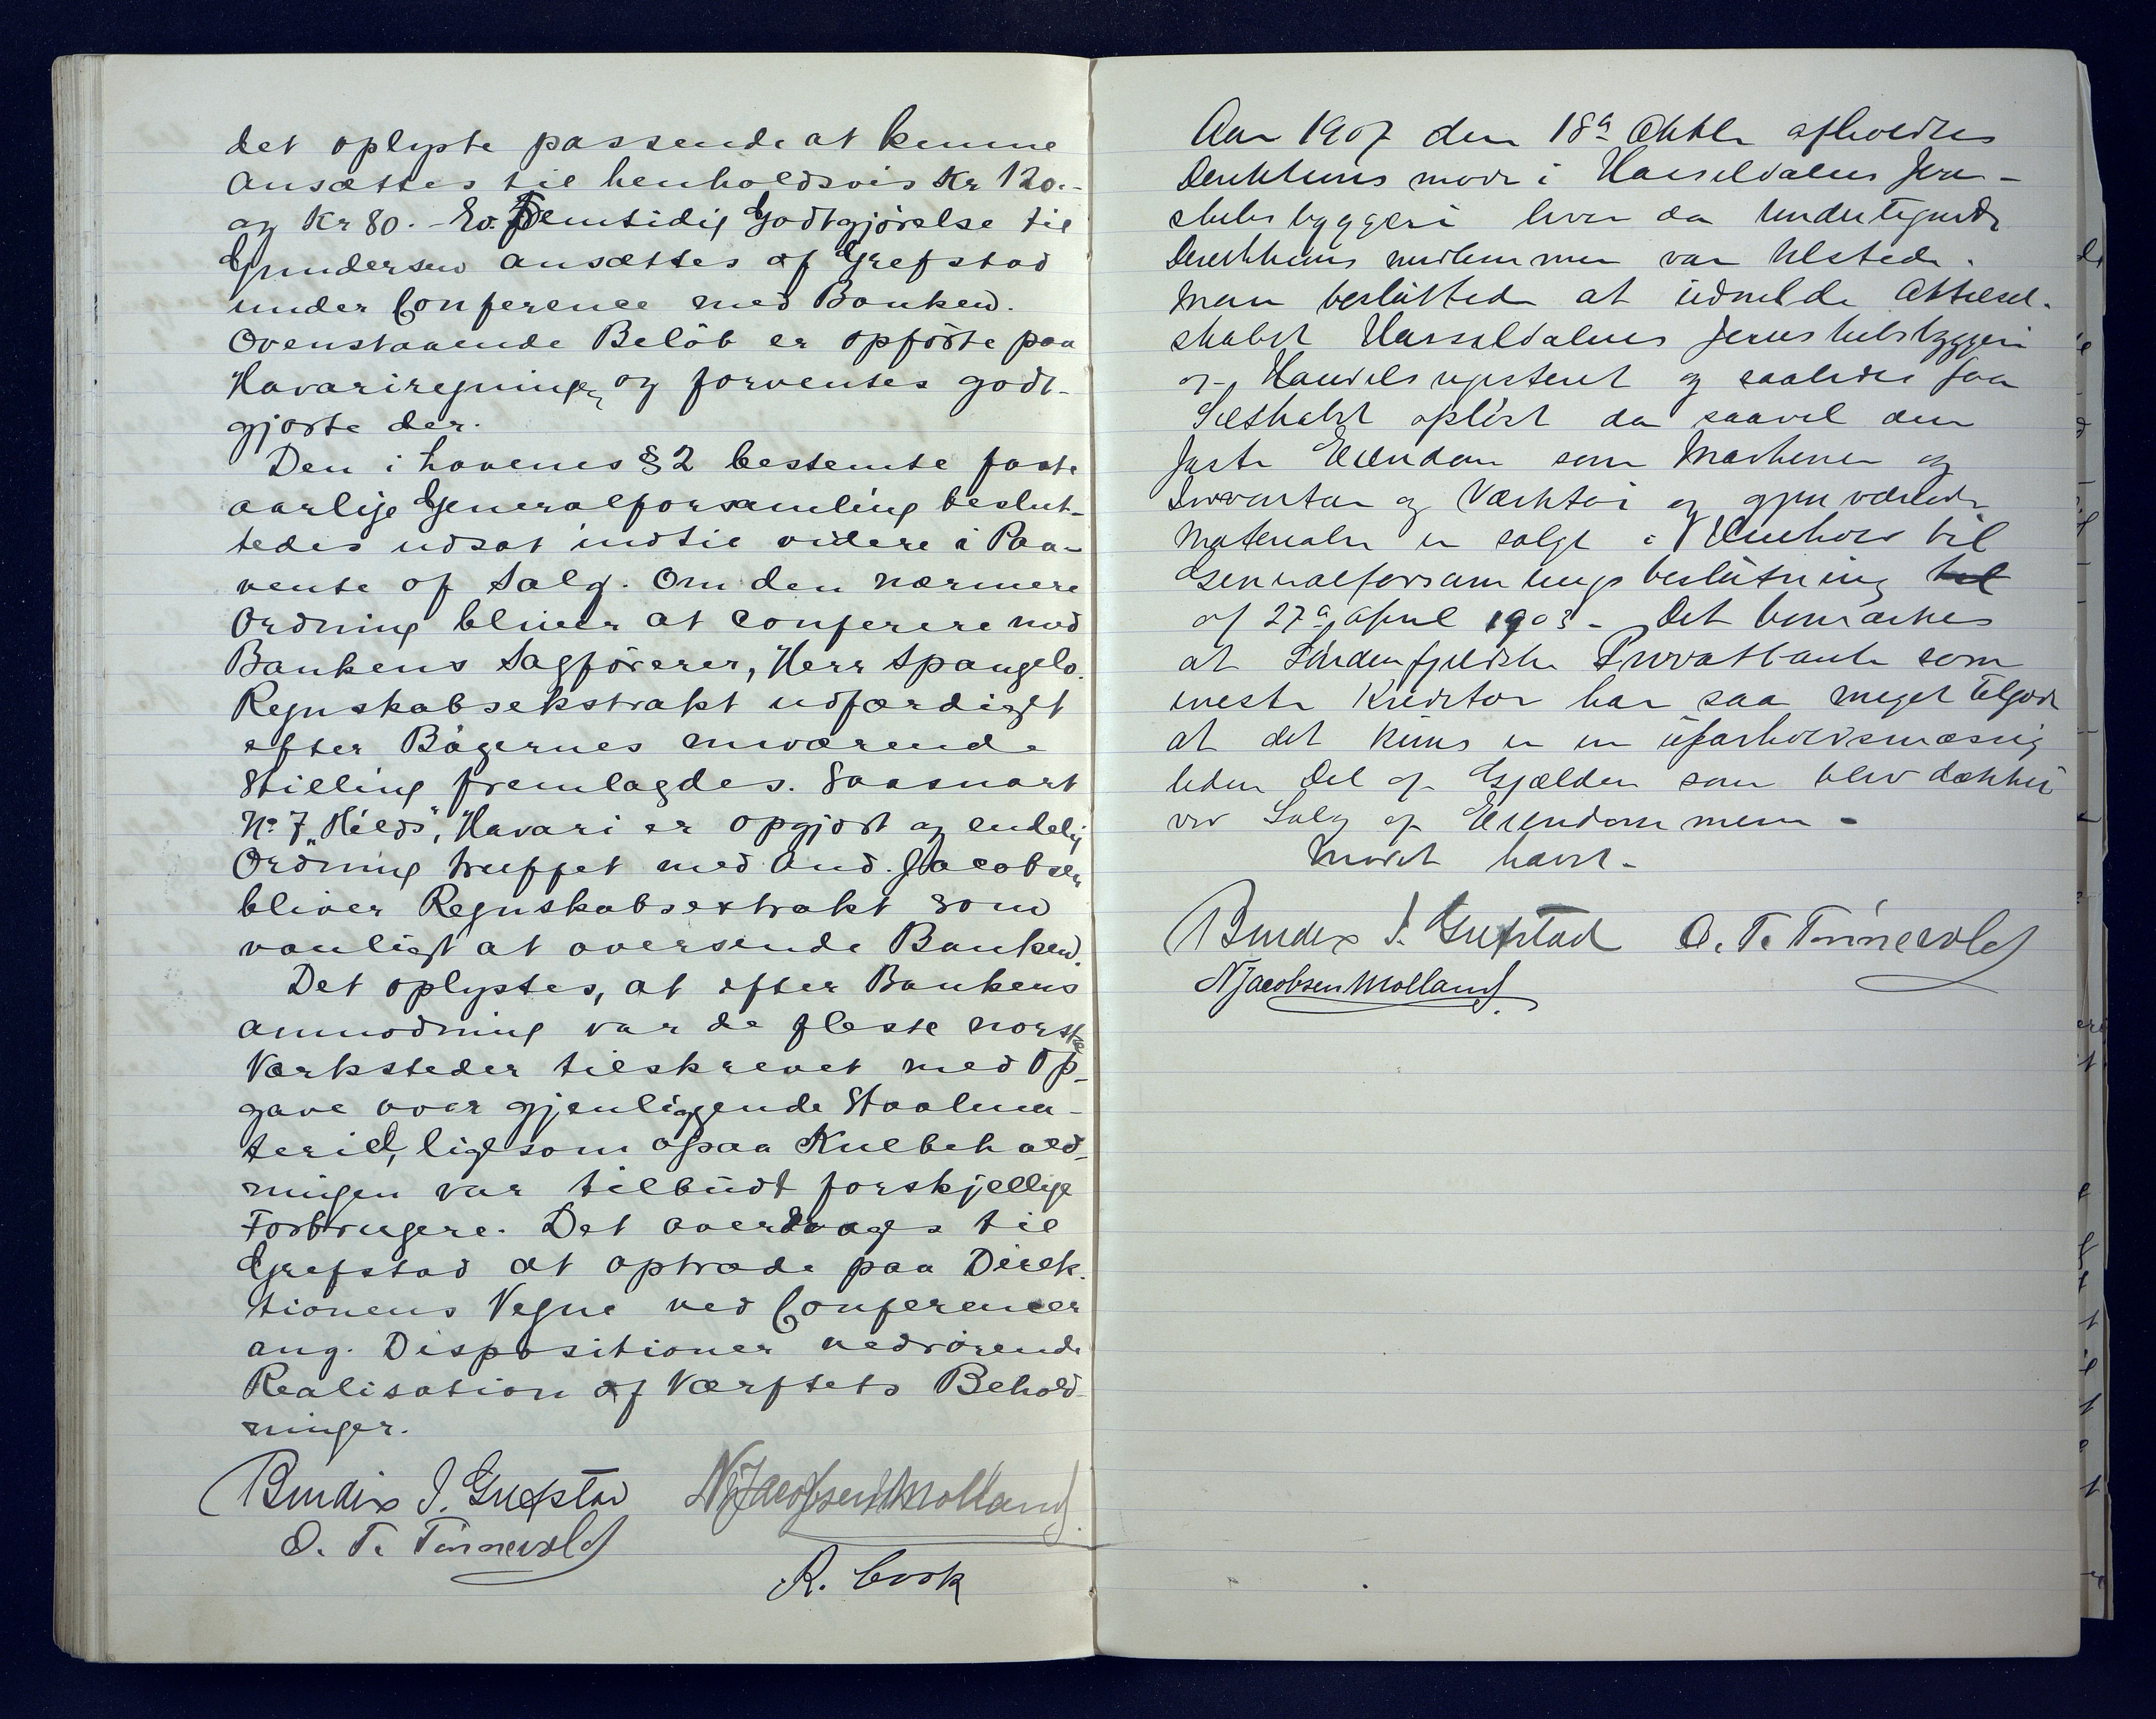 det oplyste passende at kunne
ansættes til henholdsvis Kr 120.-
og Kr 80.- Ev. Fremtidig Godtgjörelse til
Gundersen ansættes af Grefstad
under Conference med Banken.
Ovenstaaende Belöb er opförte paa
Havariregningen og forventes godt-
gjorte der.
Den i Lovenes § 2 bestemte faste
aarlige Generalforsamling beslut-
tedes udsat indtil videre i Paa-
vente af Salg. Om den nærmere
Ordning bliver at conferere med
Bankens Sagförerer, Herr Spangelo.
Regnskabsekstrakt udfærdiget
efter Bögernes nuværende
Stilling fremlagdes. Saasnart
No 7 „Hilds", Havari er opgjort og endelig
Ordning truffet med And. Jacobsen
bliver Regnskabsextrakt som
vanligt at oversende Banken.
Det oplystes, at efter Bankens
anmodning var de fleste norske
Værksteder tilskrevet med Op-
gave over gjenliggende Staalma-
teriel, ligesom ogsaa Kulbehold-
ningen var tilbudt forskjellige
Forbrugere. Det overdrages til
Grefstad at optræde paa Direk-
tionens Vegne ved Conferencer
ang. Dispositioner vedrörende
Realisation af Værftets Behold-
ninger.
Bendix J. Grefstad NJacobsenMolland
O. T. Tönnevold
R. Cook
Aar 1907 den 18de Oktbr afholdtes
Direktions möde i Hasseldalens Jern-
skibsbyggeri hvor da undertegnede
Direktions medlemmer var tilstede.
Man besluttede at udmelde Aktiesel-
skabet Hasseldalens Jernskibsbyggeri
af Handelsregisteret og saaledes faa
Selskabet oplöst da saavel den
faste Eiendom som Maskiner og
Inventar og Værktöi og gjenværende
Materialer er solgt i Henhold til
Generalforsamlings beslutning til
af 27de April 1903 - Det bemærkes
at Söndenfjeldske Privatbank som
meste Kreditor har saa meget tilgode
at det kuns er en uforholdsmæssig
liden Del af Gjælden som blev dækket
ved Salg af Eiendommen -
Mödet hævet -
Bendix J. Grefstad O. T. Tönnevold
NJacobsenMolland